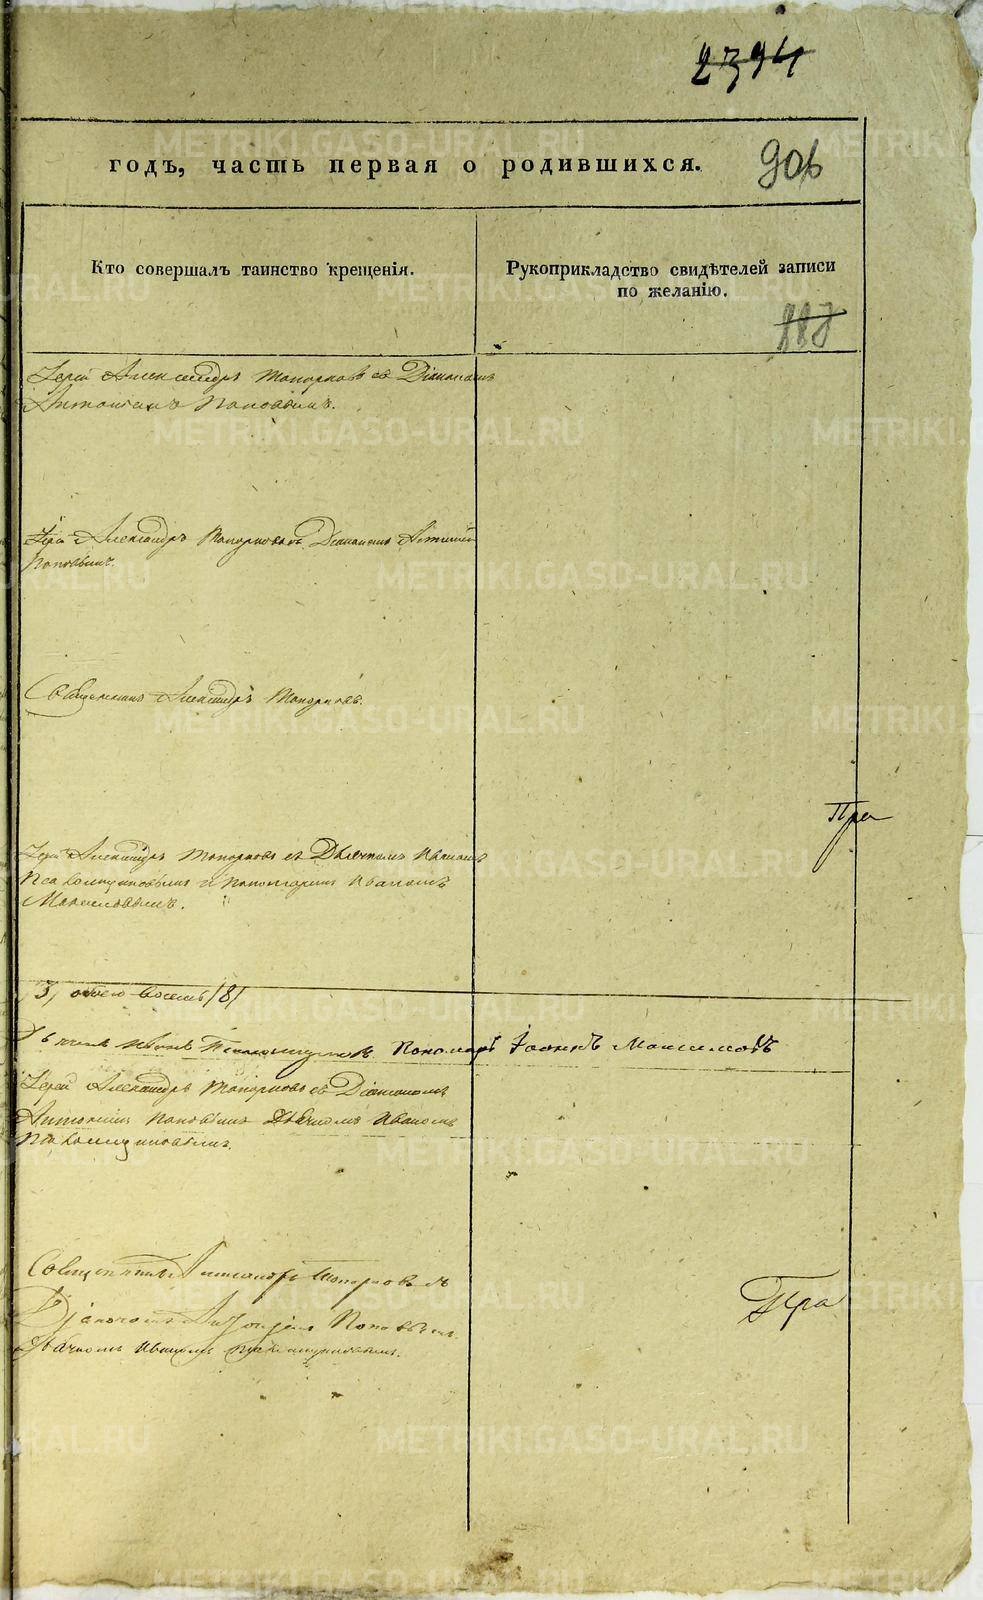 2394
годъ, часть первая о родившихся.
906
Кто совершалъ таинство крещенія.
Рукоприкладство свидѣтелей записи
по желанію.
887
Іерей Александръ Топорковъ съ Діакономъ
Антоніемъ Поповымъ.
Іерей Александръ Топорковъ Діакономъ Антоніемъ
Поповымъ.
Священникъ Александръ Топорковъ.
Пра
Іерей Александръ Топорковъ съ Дьячкомъ Иваномъ
и Пономаремъ Иваномъ
Максимовымъ.
обоего восемь /8/
Иванъ Пономарь Іоаннъ Максимовъ
Іерей Александръ Топорковъ съ Діакономъ
Антоніемъ Поповымъ Дьячкомъ Иваномъ
Священникъ Александръ Топорковъ съ
Діакономъ Антоніемъ Поповымъ
Дьячкомъ Иваномъ
Пра
METRIKI.GASO-URAL.RU